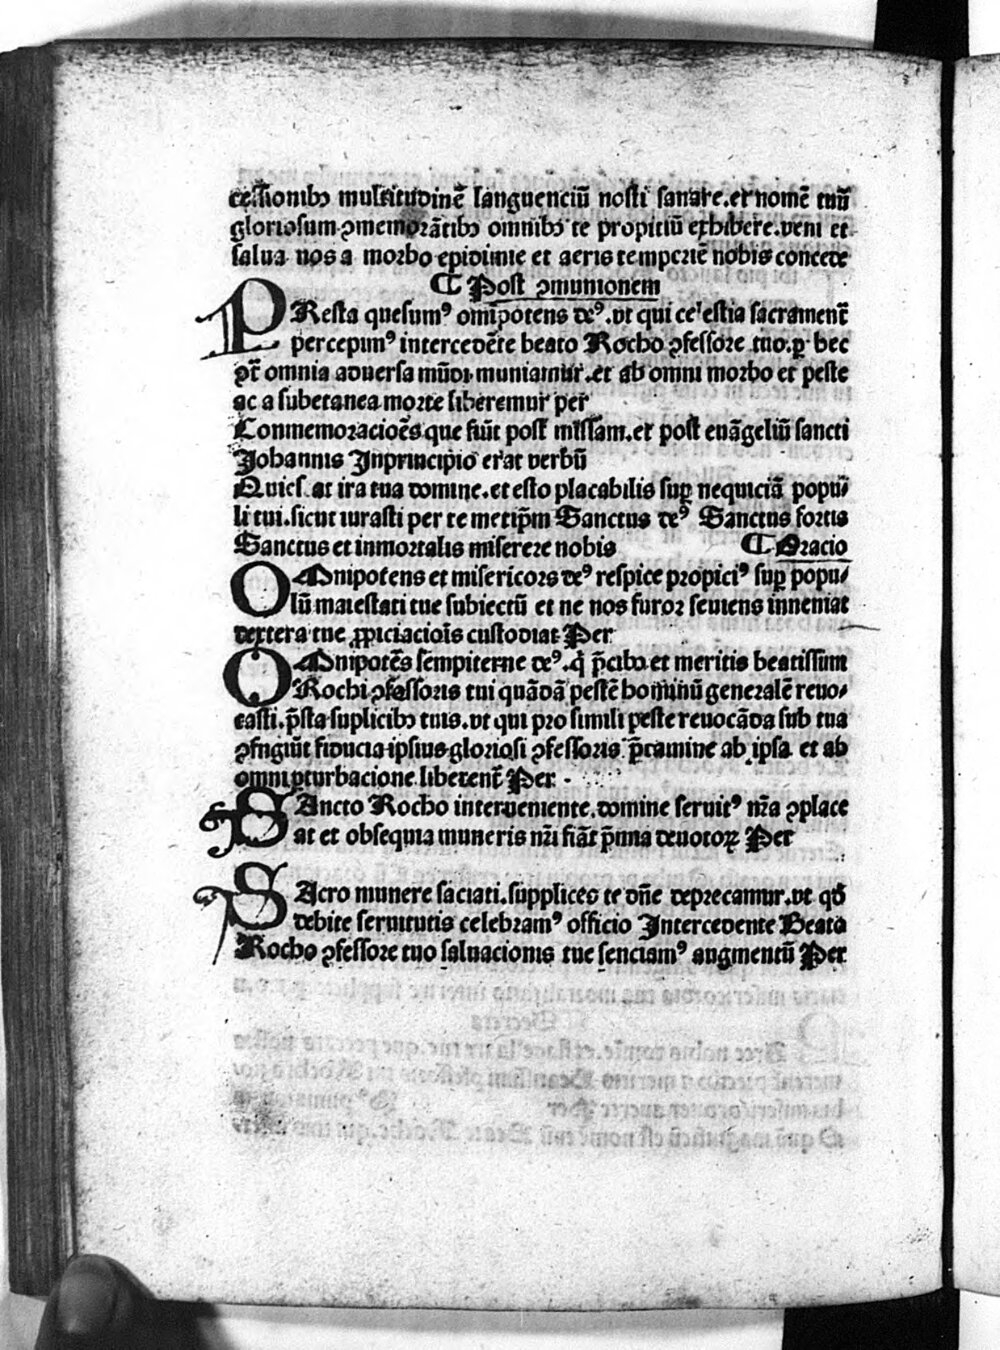 cessionibꝫ multitudinē languenciū nosti sanare. et nomē tuū
gloriosum ꝯmemorātibꝫ omnibꝫ te propiciū exhibere. veni et
salua nos a morbo epidimie et aeris temperiē nobis concede
¶ Post ꝯmunionem
PResta quesumꝰ omīpotens deꝰ. vt qui celestia sacramenta
percepimꝰ intercedēte beato Rocho ꝯfessore tuo. ꝑ hec
ꝯtra omnia aduersa mūdi muniamur. et ab omni morbo et peste
ac a subetanea morte liberemur per
Conmemoracioēs que fiūt post missam. et post euāgeliū sancti
Johannis Inprincipio erat verbū
Quiescat ira tua domine. et esto placabilis suꝑ nequiciā popu⸗
li tui. sicut iurasti per te metip̄m Sanctus deꝰ Sanctus fortis
Sanctus et inmortalis miserere nobis ¶ Oracio
OMnipotens et misericors deꝰ respice propiciꝰ suꝑ popu⸗
lū maiestati tue subiectū et ne nos furor seuiens inueniat
dextera tue ꝓpiciaciōis custodiat Per
OMnipotēs sempiterne deꝰ. q̇ p̄cibꝫ et meritis beatissimi
Rochi ꝯfessoris tui quādā pestē hominū generalē reuo⸗
casti. p̄sta suplicibꝫ tuis. vt qui pro simili peste reuocāda sub tua
ꝯfugiūt fiducia ipsius gloriosi ꝯfessoris p̄camine ab ipsa et ab
omni ꝑturbacione liberent̄ Per
SAncto Rocho interueniente. domine seruitꝰ nr̄a ꝯplace
at et obsequia muneris nr̄i fiāt p̄mia deuotoꝝ Per
SAcro munere saciati. supplices te dn̄e deprecamur. vt qd̄
debite seruitutis celebramꝰ officio Intercedente Beato
Rocho ꝯfessore tuo saluacionis tue senciamꝰ augmentū Per